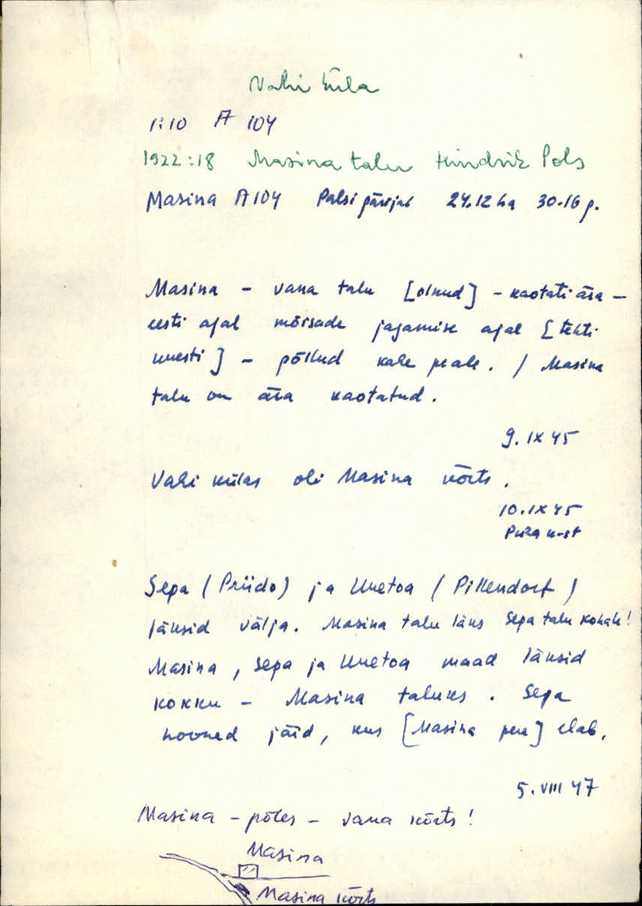 Vahi küla
1:10 A 104
1922:18 Masina talu Hindrik Pols
Masina A104 Palsi pärijad 24.12 ha 30.16 p.
Masina – vana talu [olnud] – kaotati ära –
eesti ajal mõisade jagamise ajal [tehti
uuesti] – põllud kahe peale. / Masina
talu on ära kaotatud.
9. IX 45
Vahi külas oli Masina kõrts.
10. IX 45
Sepa (Priido) ja Unetoa (Pillendorf)
läksid välja. Masina talu läks Sepa talu kohale!
Masina, Sepa ja Unetoa maad läksid
kokku – Masina taluks. Sepa
hooned jäid, kus [Masina pere] elab.
5. VIII 47
Masina – põles – vana kõrts!
Masina
Masina kõrts